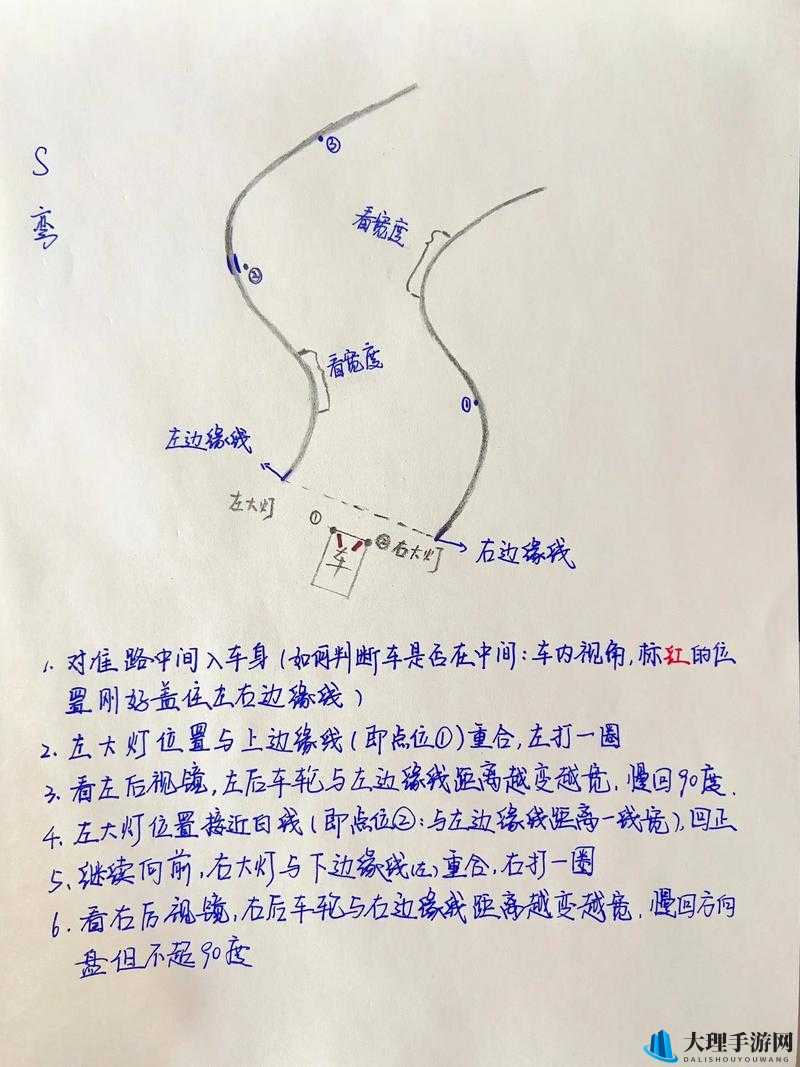 S
弯
③
看宽度
②
看宽度
①
左边缘线
左大灯
①
②
右大灯
车
右边缘线
1. 对准路中间入车身(如何判断车是否在中间:车内视角,标红的位
置刚好盖住左右边缘线)
2. 左大灯位置与上边缘线(即点位①)重合,左打一圈
3. 看左后视镜,左后车轮与左边缘线距离越变越宽,慢回90度.
4. 左大灯位置接近白线(即点位②:与左边缘线距离一线宽),回正
5. 继续向前,右大灯与下边缘线(左)重合,右打一圈
6. 看右后视镜,右后车轮与右边缘线距离越变越宽,慢回方向
盘但不超90度
大理手游网
DALISHOUYOUWANG